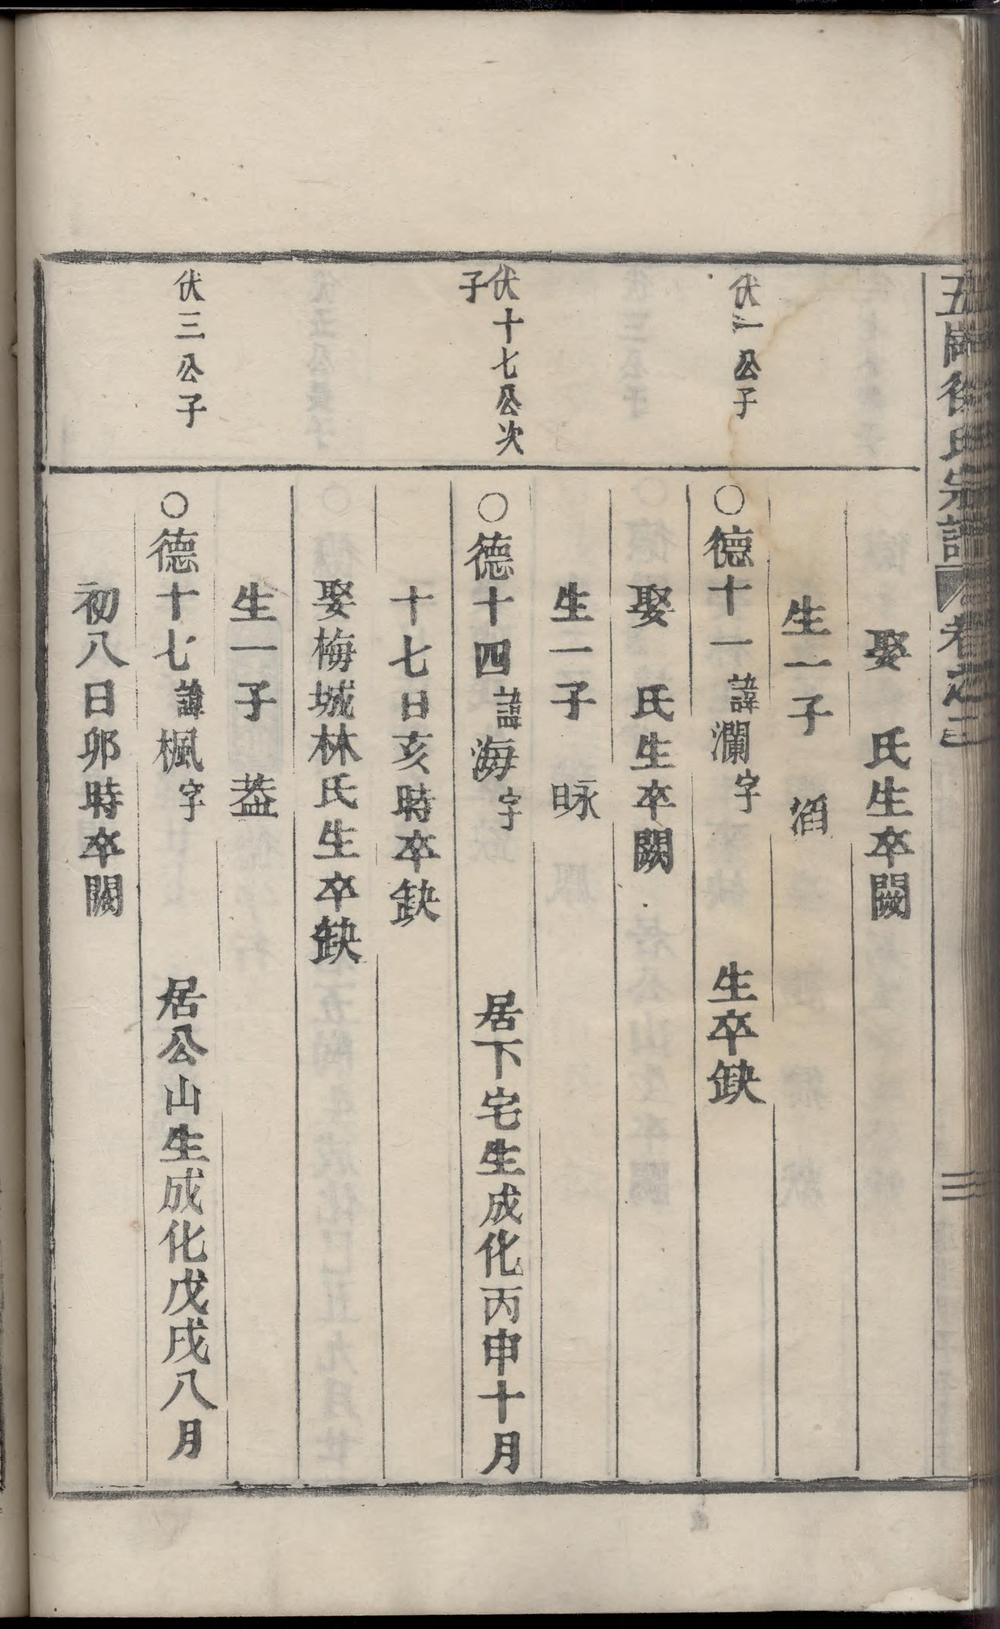 徐氏宗譜 卷之三
娶 氏生卒闕
生一子 滔
伏一公子
○德十一諱瀾字 生卒缺
娶 氏生卒闕
生一子 昹
伏十七公次子
○德十四諱海字 居下宅生成化丙申十月
十七日亥時卒缺
娶梅城林氏生卒缺
生一子 葢
伏三公子
○德十七諱楓字 居公山生成化戊戌八月
初八日卯時卒闕